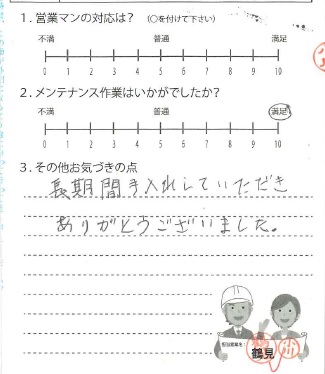 1. 営業マンの対応は? (○を付けて下さい)
不満 普通 満足
0 1 2 3 4 5 6 7 8 9 10
2. メンテナンス作業はいかがでしたか?
不満 普通 満足
0 1 2 3 4 5 6 7 8 9 10
3. その他お気づきの点
長期間手入れしていただき
ありがとうございました。
担当営業名:
鶴見
小川